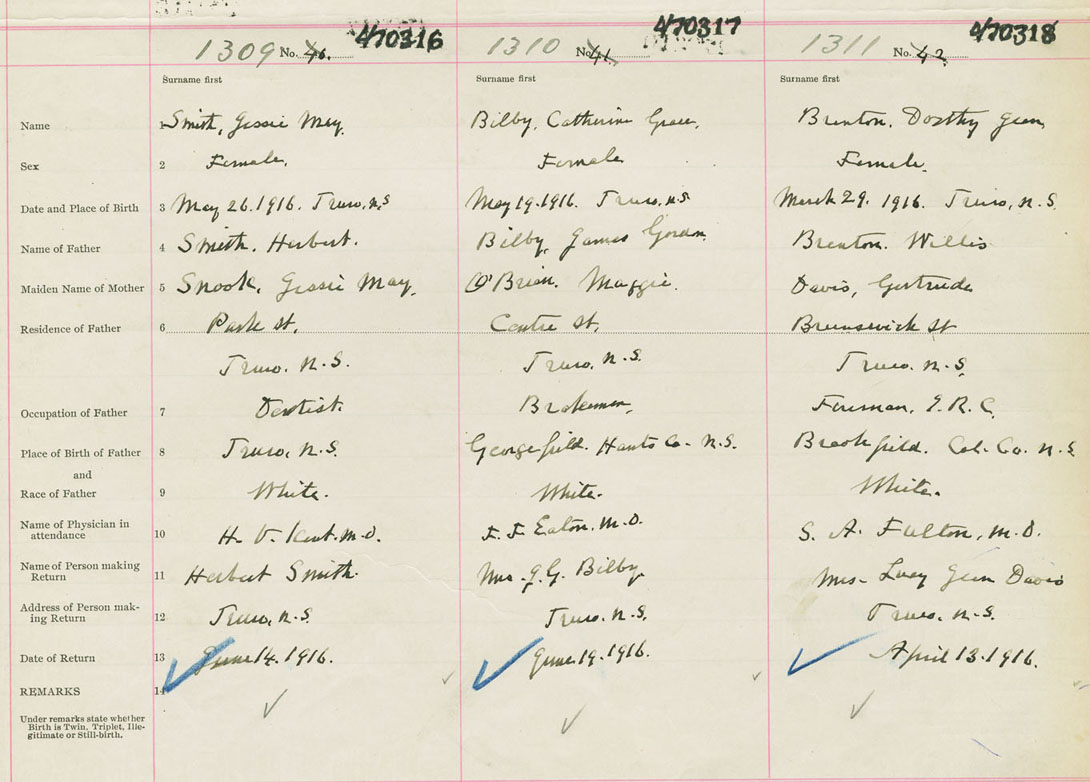 1309 No. 40. 470316
1310 No. 41. 470317
1311 No. 42. 470318
Surname first Surname first Surname first
Name 1 Smith, Jessie May. Bilby, Catherine Grace. Brenton, Dorothy Jean
Sex 2 Female. Female Female.
Date and Place of Birth 3 May 26. 1916. Truro, N.S May 19. 1916. Truro. N.S. March 29. 1916. Truro, N.S.
Name of Father 4 Smith. Herbert. Bilby, James Gordon. Brenton. Willis
Maiden Name of Mother 5 Snook, Jessie May. O'Brien. Maggie. Davis, Gertrude
Residence of Father 6 Park St. Centre St. Brunswick St
Truro. N.S. Truro, N.S. Truro. N.S.
Occupation of Father 7 Dentist. Brakeman, Foreman, I.R.C.
Place of Birth of Father 8 Truro, N.S. Georgefield. Hants Co. N.S. Brookfield. Col. Co. N.S
and
Race of Father 9 White. White. White.
Name of Physician in
attendance 10 H. V. Kent. M.D. F. F. Eaton, M.D. S. A. Fulton, M.D.
Name of Person making
Return 11 Herbert Smith. Mrs. J. G. Bilby Mrs. Lucy Jean Davis
Address of Person mak-
ing Return 12 Truro, N.S. Truro. N.S. Truro. N.S.
Date of Return 13 June 14. 1916. June 19. 1916. April 13. 1916.
REMARKS 14
Under remarks state whether
Birth is Twin, Triplet, Ille-
gitimate or Still-birth.